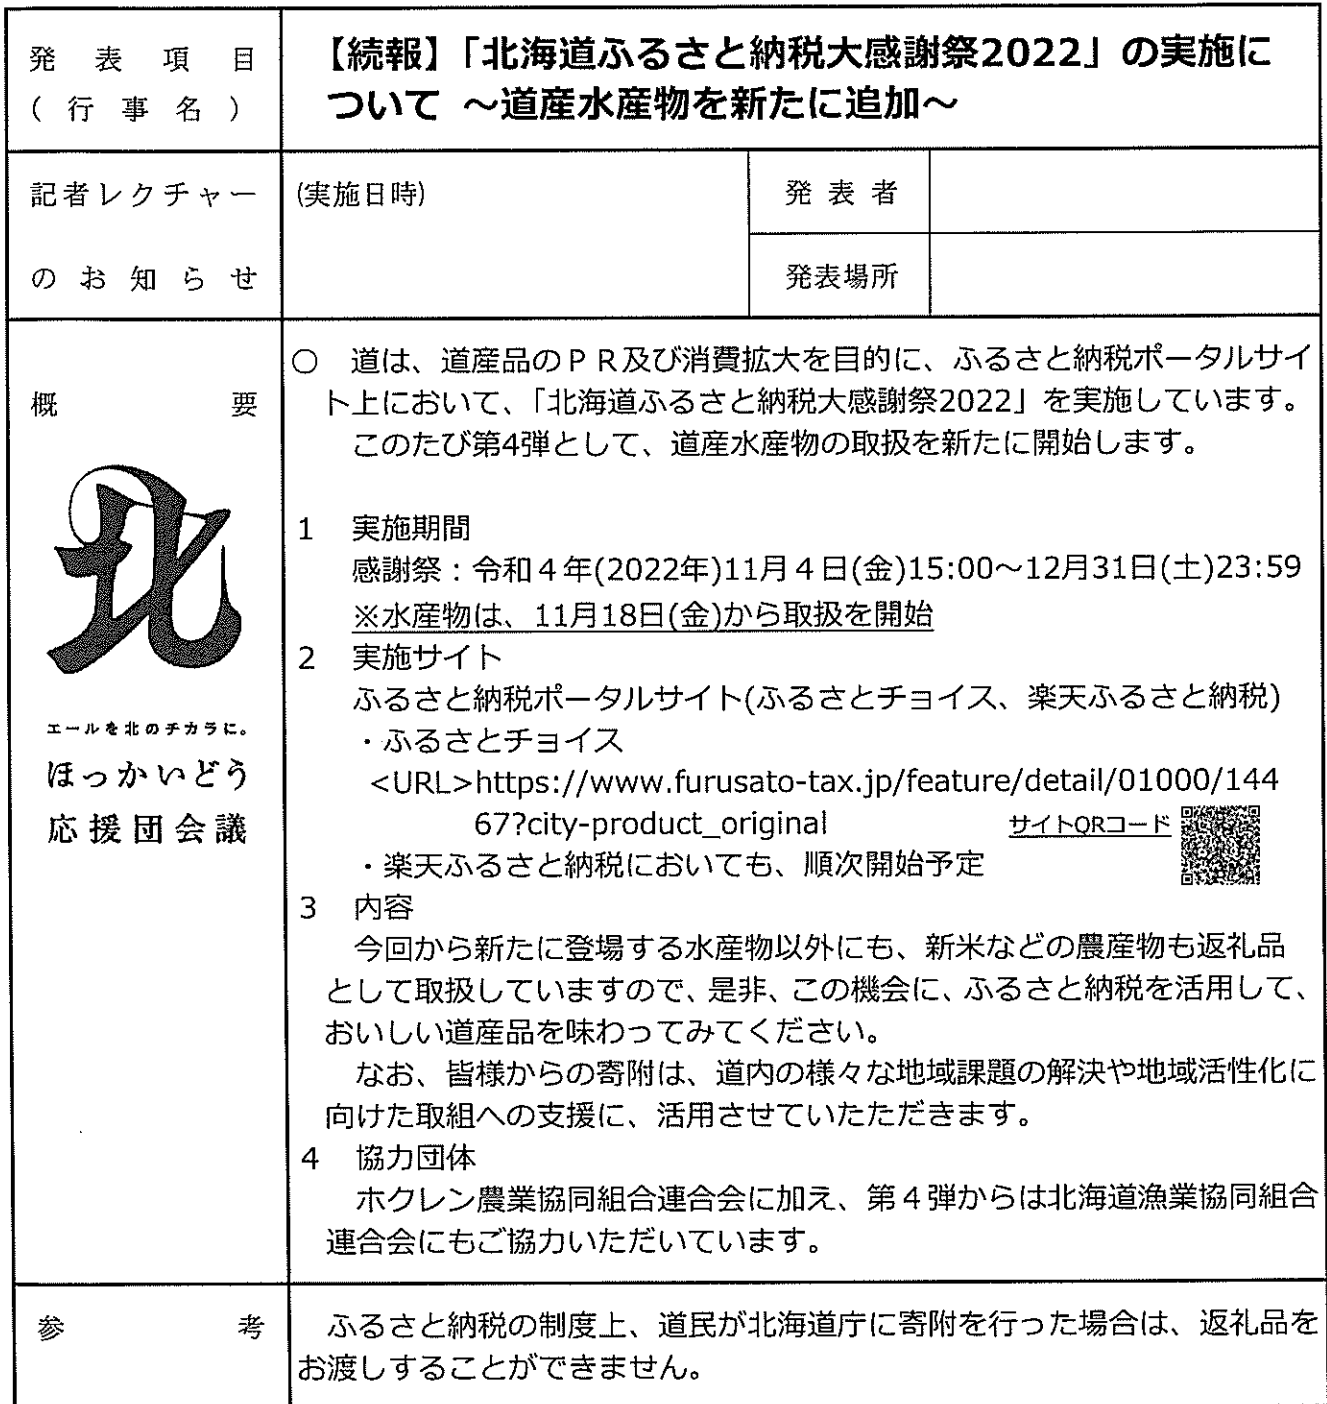 発表項目
(行事名)
【続報】「北海道ふるさと納税大感謝祭2022」の実施に
ついて ～道産水産物を新たに追加～
記者レクチャー
のお知らせ
(実施日時)
発表者
発表場所
概要
北
エールを北のチカラに。
ほっかいどう
応援団会議
○ 道は、道産品のＰＲ及び消費拡大を目的に、ふるさと納税ポータルサイ
ト上において、「北海道ふるさと納税大感謝祭2022」を実施しています。
このたび第4弾として、道産水産物の取扱を新たに開始します。
1 実施期間
感謝祭：令和４年(2022年)11月４日(金)15:00～12月31日(土)23:59
※水産物は、11月18日(金)から取扱を開始
2 実施サイト
ふるさと納税ポータルサイト(ふるさとチョイス、楽天ふるさと納税)
・ふるさとチョイス
<URL>https://www.furusato-tax.jp/feature/detail/01000/144
67?city-product_original サイトQRコード
・楽天ふるさと納税においても、順次開始予定
3 内容
今回から新たに登場する水産物以外にも、新米などの農産物も返礼品
として取扱していますので、是非、この機会に、ふるさと納税を活用して、
おいしい道産品を味わってみてください。
なお、皆様からの寄附は、道内の様々な地域課題の解決や地域活性化に
向けた取組への支援に、活用させていたただきます。
4 協力団体
ホクレン農業協同組合連合会に加え、第４弾からは北海道漁業協同組合
連合会にもご協力いただいています。
参考
ふるさと納税の制度上、道民が北海道庁に寄附を行った場合は、返礼品を
お渡しすることができません。